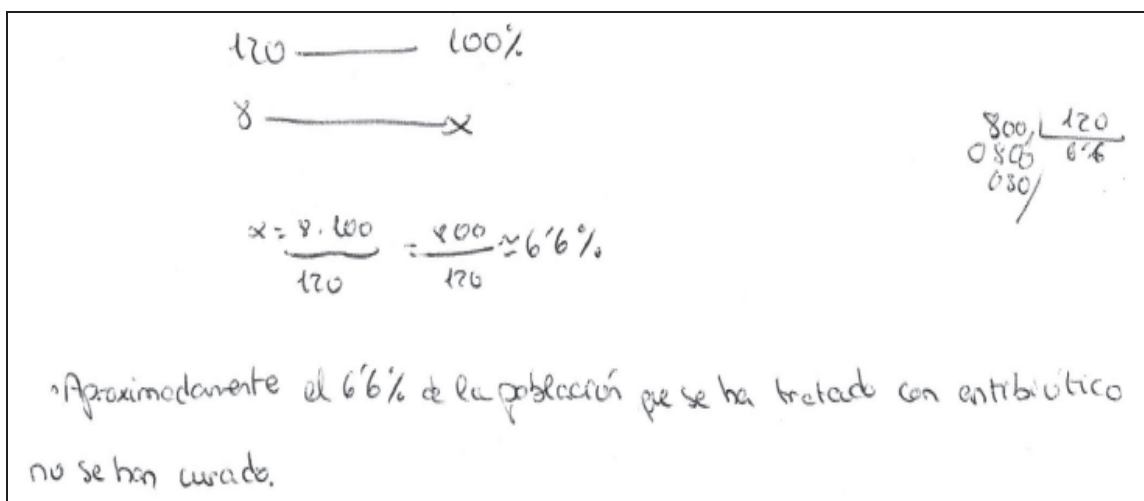 120 —— 100%
8 —— x
800, | 120
0800 6'6
080/
x = 8·100 / 120 = 800 / 120 ≃ 6'6%
Aproximadamente el 6'6% de la población que se ha tratado con antibiótico
no se han curado.